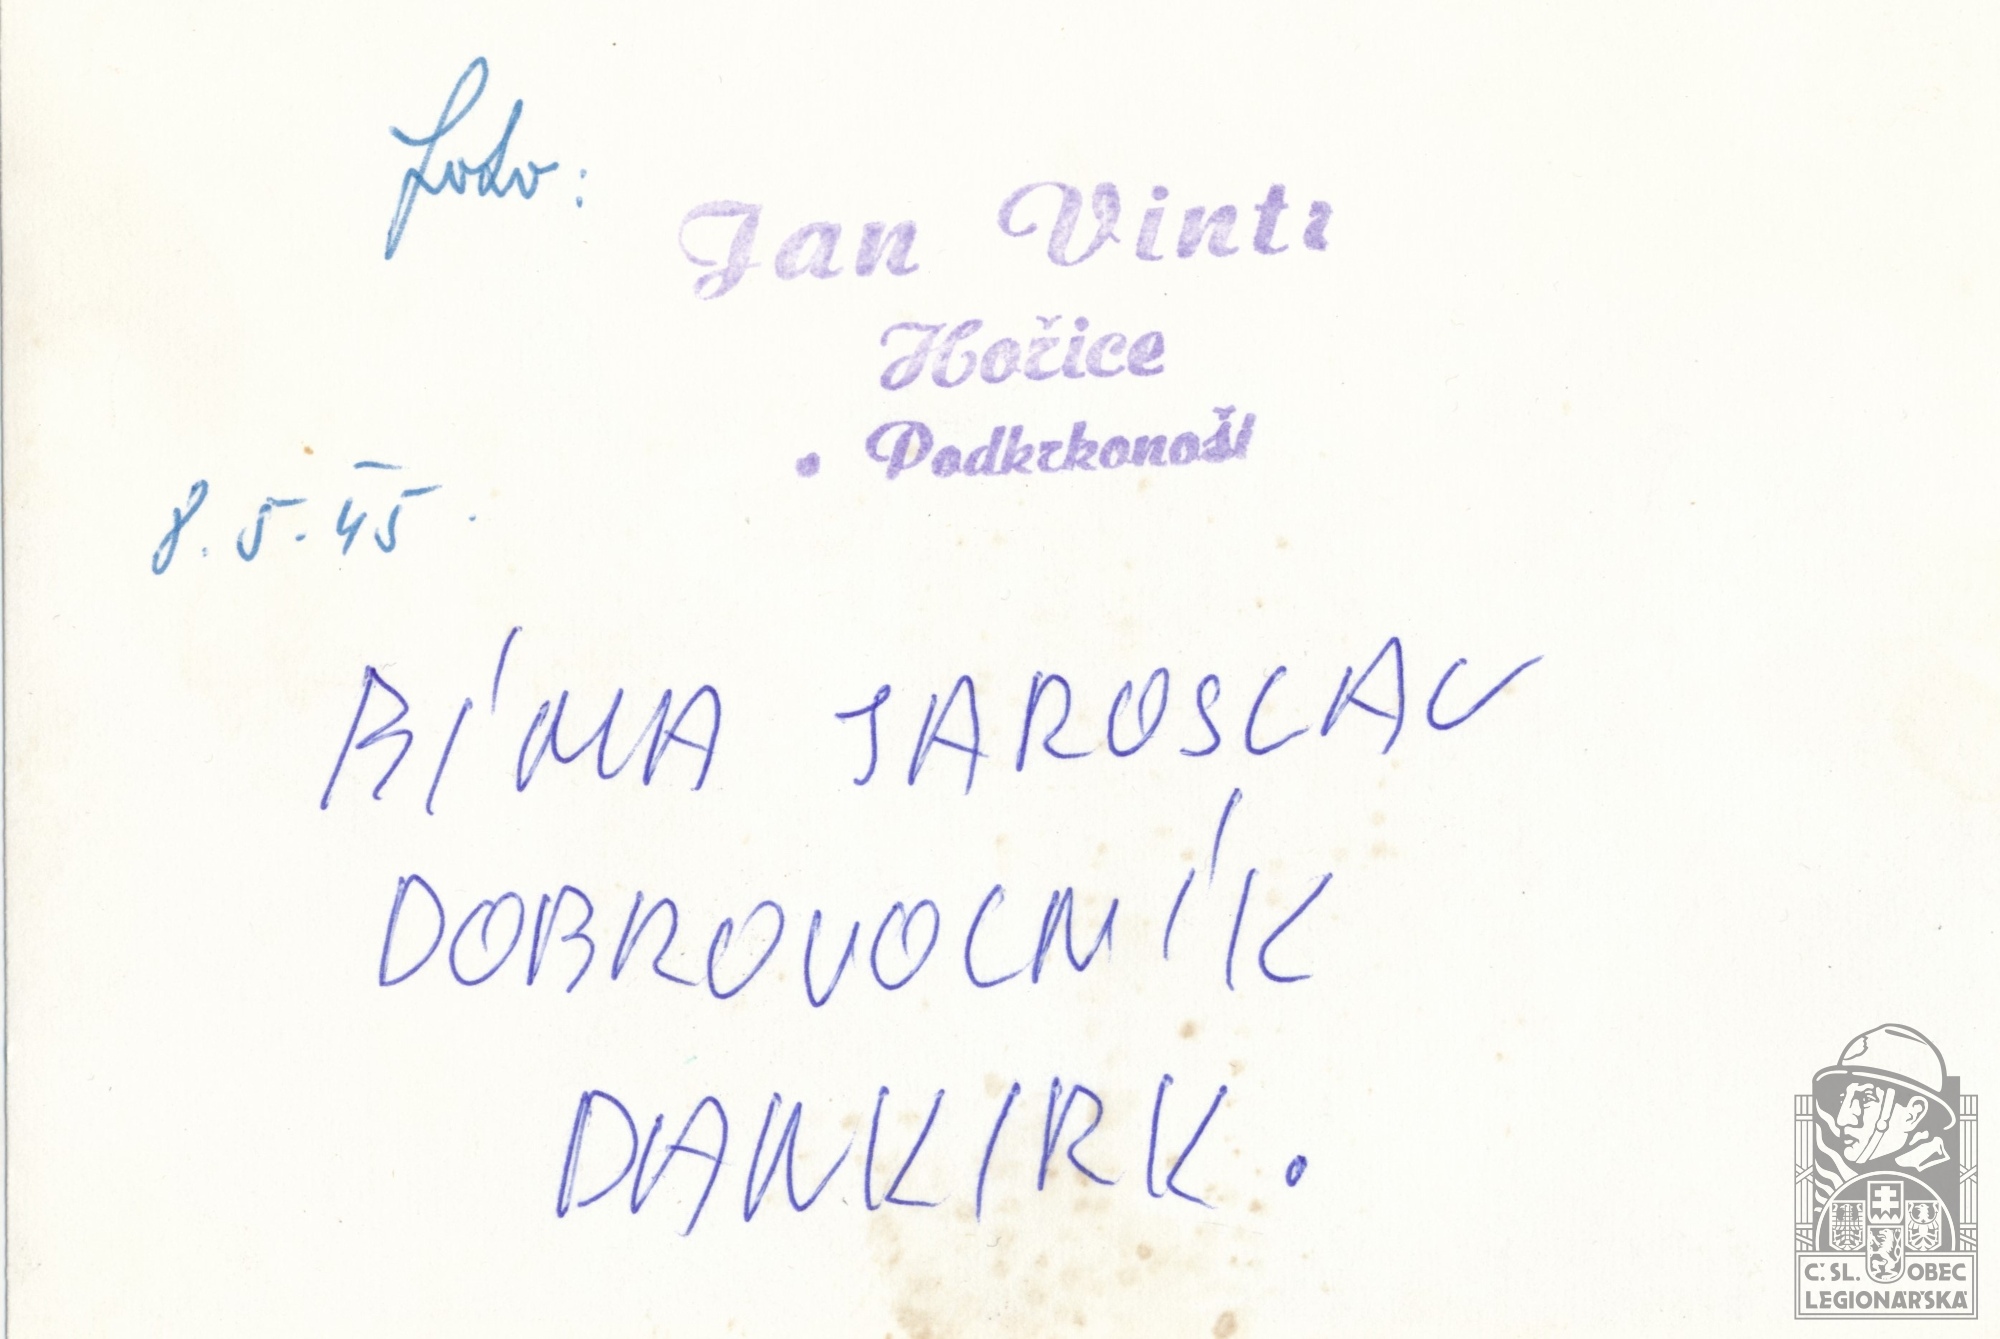 foto:
Jan Vintr
Hořice
• Podkrkonoší
8.5.45.
BÍMA JAROSLAV
DOBROVOLNÍK
DANKIRK.
Č.SL. OBEC
LEGIONÁŘSKÁ